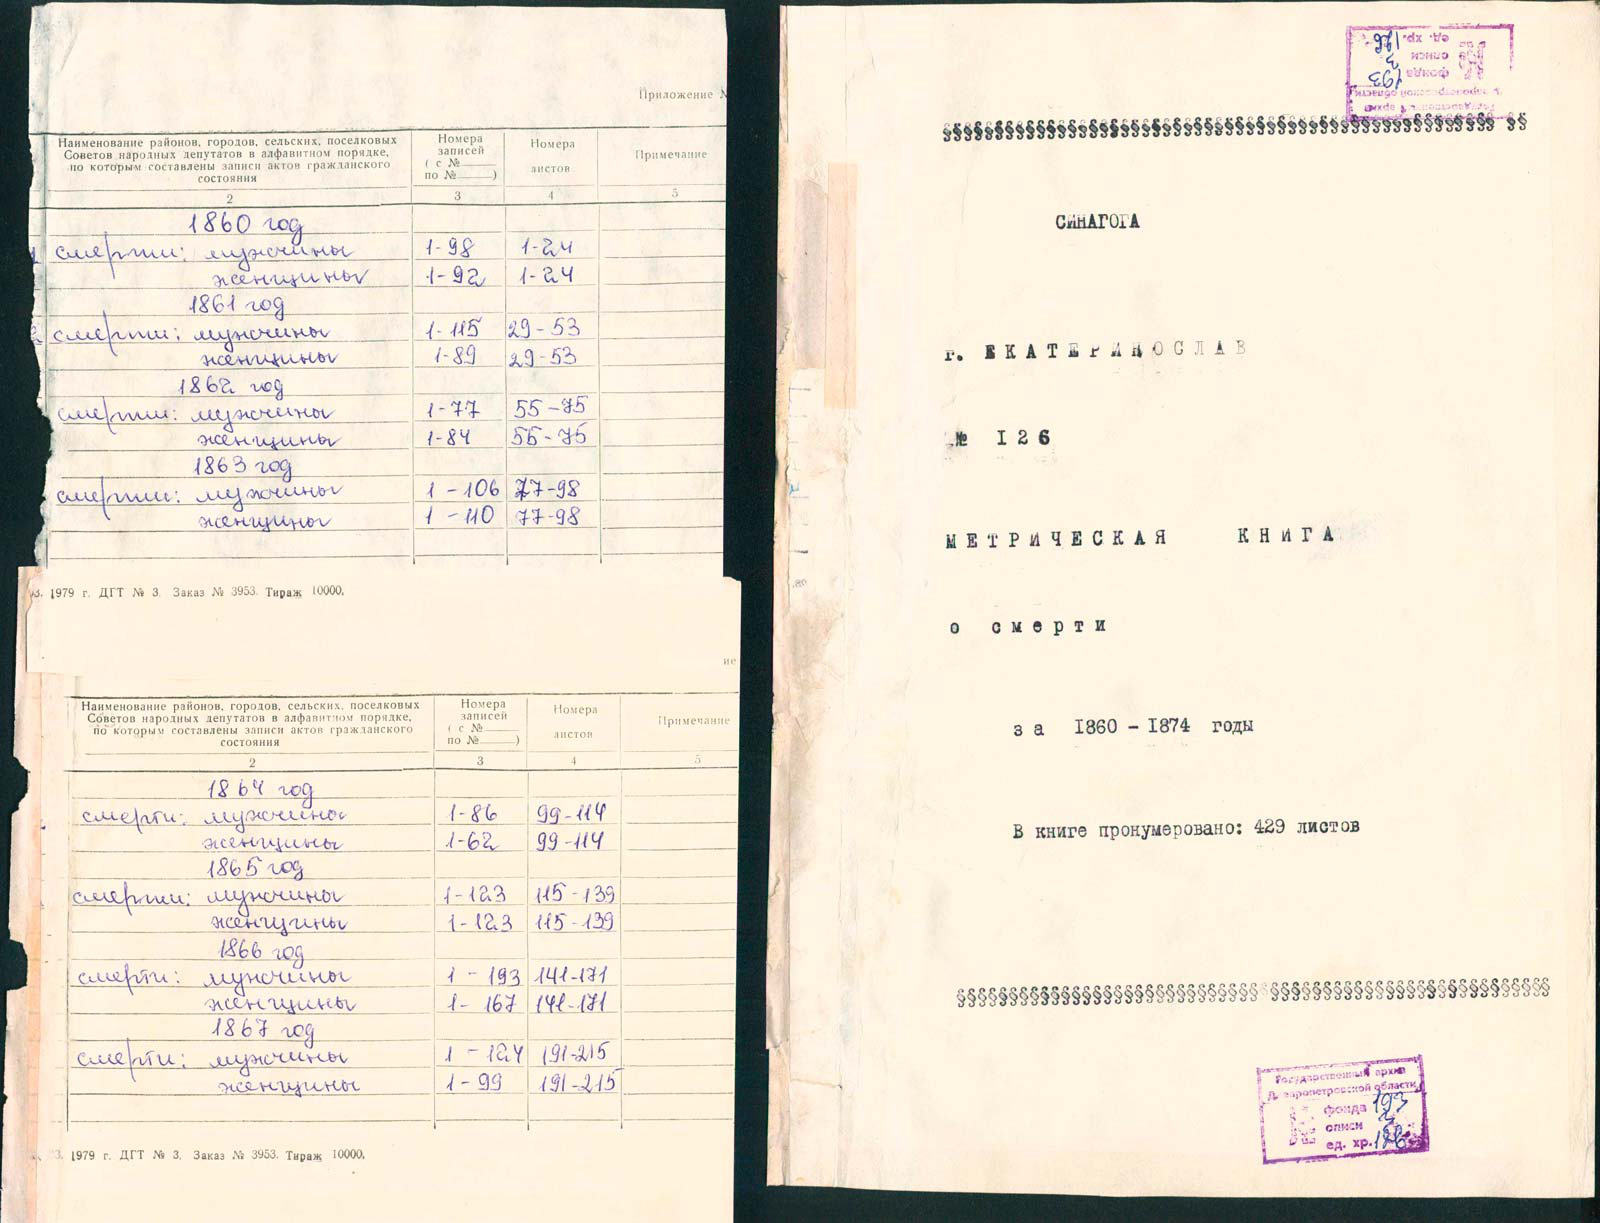 Приложение
Наименование районов, городов, сельских, поселковых
Советов народных депутатов в алфавитном порядке,
по которым составлены записи актов гражданского
состояния
Номера
записей
( с №
по № )
Номера
листов
Примечание
2 3 4 5
1860 год
смерти: мужчины 1-98 1-24
женщины 1-92 1-24
1861 год
смерти: мужчины 1-115 29-53
женщины 1-89 29-53
1862 год
смерти: мужчины 1-77 55-75
женщины 1-84 55-75
1863 год
смерти: мужчины 1-106 77-98
женщины 1-110 77-98
1979 г. ДГТ № 3. Заказ № 3953. Тираж 10000.
ие
Наименование районов, городов, сельских, поселковых
Советов народных депутатов в алфавитном порядке,
по которым составлены записи актов гражданского
состояния
Номера
записей
( с №
по № )
Номера
листов
Примечание
2 3 4 5
1864 год
смерти: мужчины 1-86 99-114
женщины 1-62 99-114
1865 год
смерти: мужчины 1-123 115-139
женщины 1-123 115-139
1866 год
смерти: мужчины 1-193 141-171
женщины 1-167 141-171
1867 год
смерти: мужчины 1-124 191-215
женщины 1-99 191-215
1979 г. ДГТ № 3. Заказ № 3953. Тираж 10000.
ед. хр. 126
описи 3
фонда 193
§§§§§§§§§§§§§§§§§§§§§§§§§§§§§§§§§§§§§§§§§§§ §§
СИНАГОГА
г. ЕКАТЕРИНОСЛАВ
№ 126
МЕТРИЧЕСКАЯ КНИГА
о смерти
за 1860 - 1874 годы
В книге пронумеровано: 429 листов
§§§§§§§§§§§§§§§§§§§§§§§§§§§§§§§§§§§§§§§§§§§§§
Государственный архив
Днепропетровской области
фонда 193
описи 3
ед. хр. 126